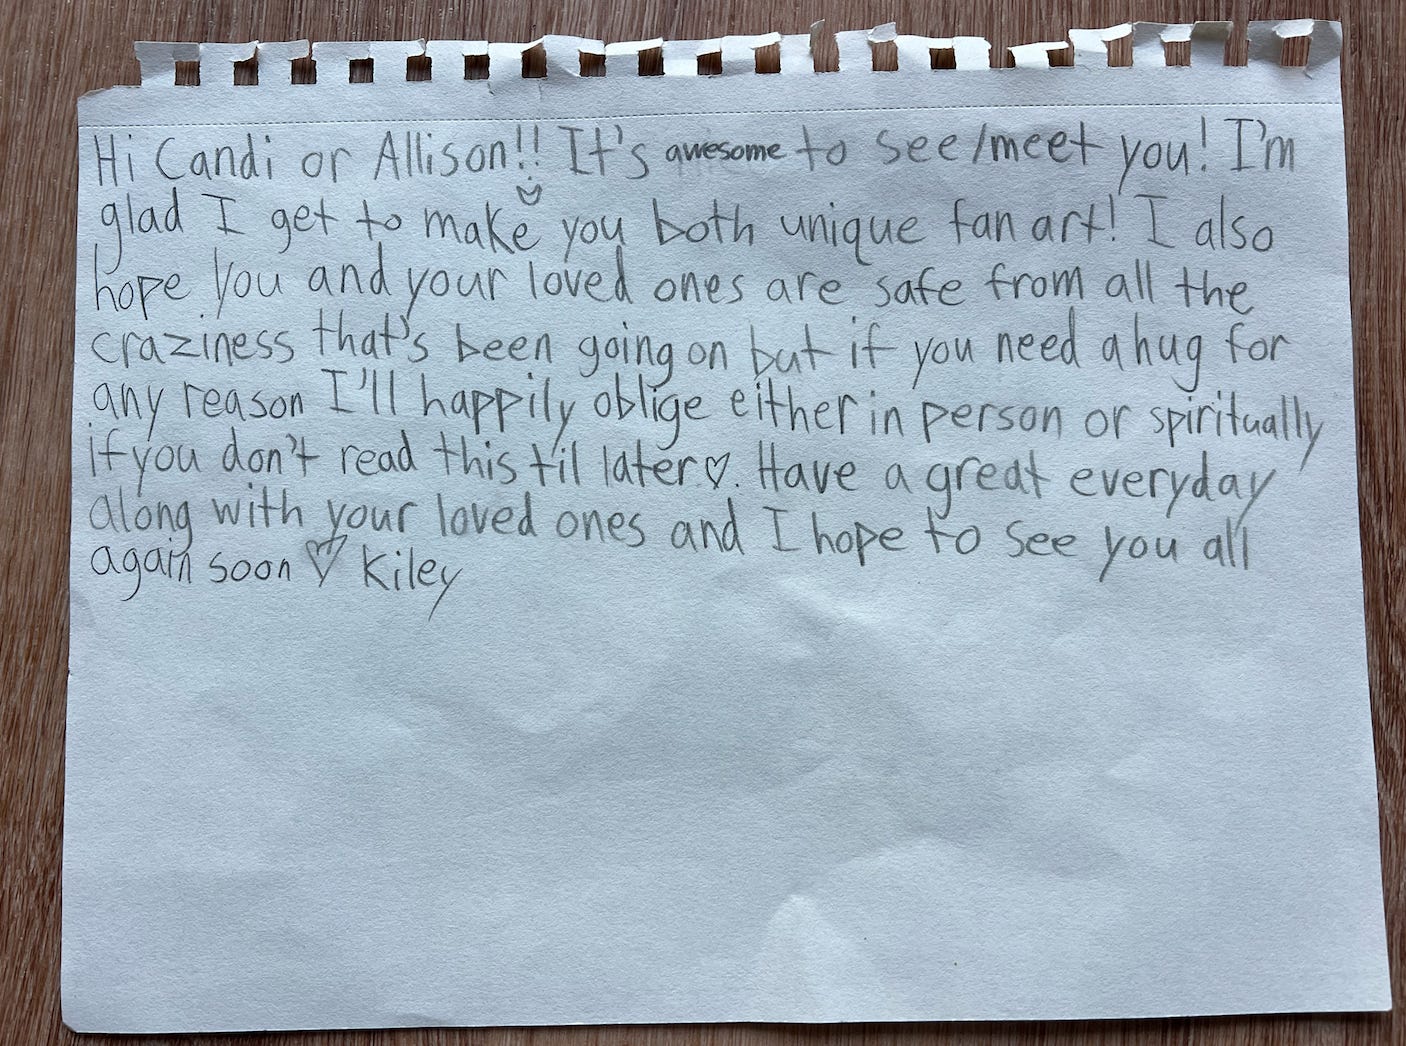 Hi Candi or Allison!! It's awesome to see/meet you! I'm
glad I get to make you both unique fan art! I also
hope you and your loved ones are safe from all the
craziness that's been going on but if you need a hug for
any reason I'll happily oblige either in person or spiritually
if you don't read this til later♡. Have a great everyday
along with your loved ones and I hope to see you all
again soon ♡ Kiley